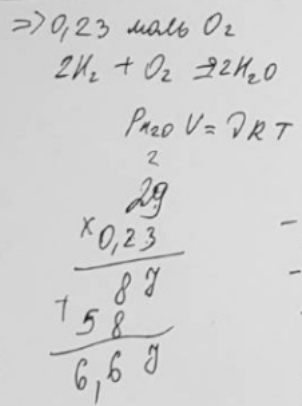 => 0,23 моль O₂
2H₂ + O₂ ⇒ 2H₂O
P_H₂O V = νRT
2
29
× 0,23
87
+ 58
6,67